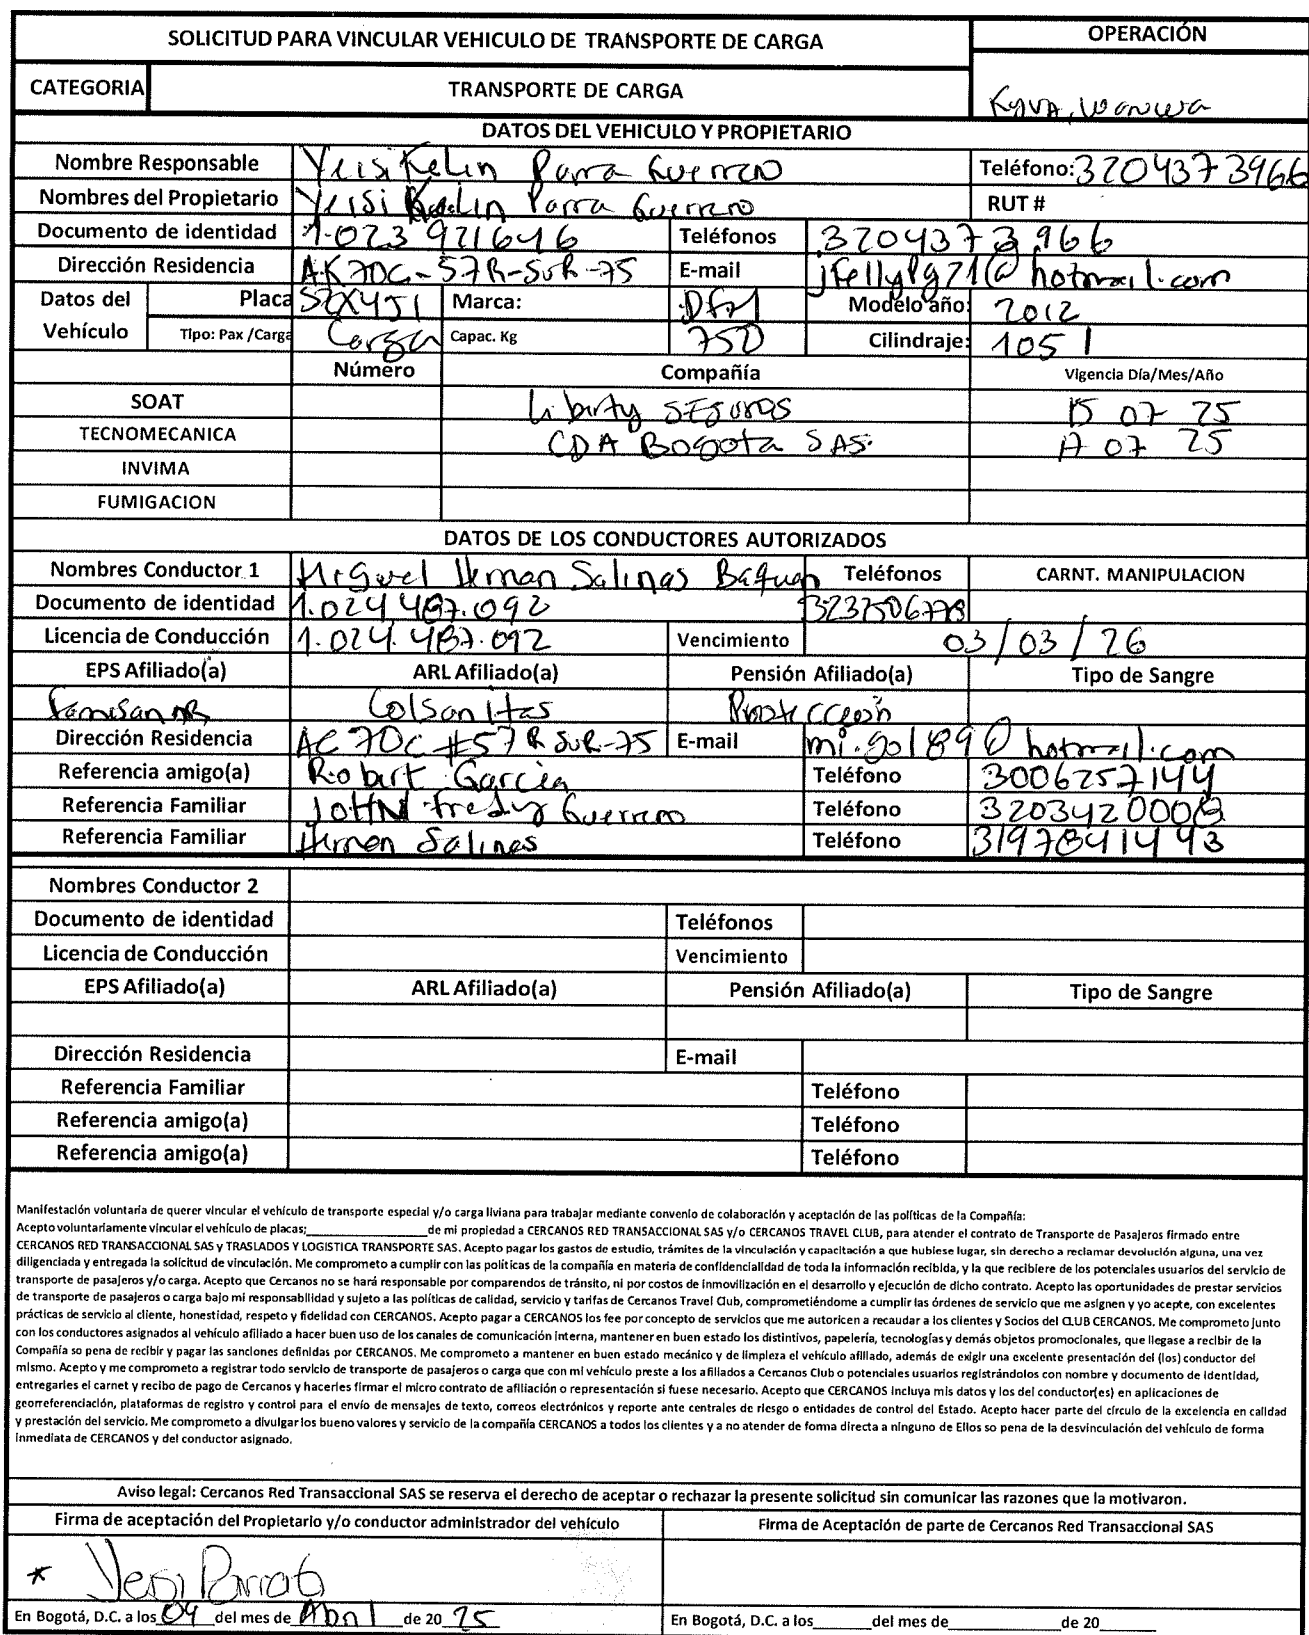 SOLICITUD PARA VINCULAR VEHICULO DE TRANSPORTE DE CARGA OPERACIÓN
CATEGORIA TRANSPORTE DE CARGA
DATOS DEL VEHICULO Y PROPIETARIO
Nombre Responsable Yeisi Kelin Parra Guerrero Teléfono: 3204373966
Nombres del Propietario Yeisi Kelin Parra Guerrero RUT #
Documento de identidad 1.023 921646 Teléfonos 3204373966
Dirección Residencia AK70C-57R-SUR-75 E-mail jkellypg21@hotmail.com
Datos del Vehículo Placa Marca: DFM Modelo año: 2012
Tipo: Pax /Carga Carga Capac. Kg 750 Cilindraje: 1051
Número Compañía Vigencia Día/Mes/Año
SOAT Liberty SEGUROS 15 07 25
TECNOMECANICA CDA Bogota SAS. 17 07 25
INVIMA
FUMIGACION
DATOS DE LOS CONDUCTORES AUTORIZADOS
Nombres Conductor 1 Miguel Hernan Salinas Teléfonos CARNT. MANIPULACION
Documento de identidad 1.024.487.092
Licencia de Conducción 1.024.487.092 Vencimiento 03/03/26
EPS Afiliado(a) ARL Afiliado(a) Pensión Afiliado(a) Tipo de Sangre
Famisanar Colsanitas Protección
Dirección Residencia AC 70C #57R SUR-75 E-mail mi.gol89@hotmail.com
Referencia amigo(a) Robert Garcia Teléfono 3006257144
Referencia Familiar JOHN Fredy Guerrero Teléfono
Referencia Familiar Hernan Salinas Teléfono 3197841493
Nombres Conductor 2
Documento de identidad Teléfonos
Licencia de Conducción Vencimiento
EPS Afiliado(a) ARL Afiliado(a) Pensión Afiliado(a) Tipo de Sangre
Dirección Residencia E-mail
Referencia Familiar Teléfono
Referencia amigo(a) Teléfono
Referencia amigo(a) Teléfono
Manifestación voluntaria de querer vincular el vehículo de transporte especial y/o carga liviana para trabajar mediante convenio de colaboración y aceptación de las políticas de la Compañía:
Acepto voluntariamente vincular el vehículo de placas;____________________de mi propiedad a CERCANOS RED TRANSACCIONAL SAS y/o CERCANOS TRAVEL CLUB, para atender el contrato de Transporte de Pasajeros firmado entre
CERCANOS RED TRANSACCIONAL SAS y TRASLADOS Y LOGISTICA TRANSPORTE SAS. Acepto pagar los gastos de estudio, trámites de la vinculación y capacitación a que hubiese lugar, sin derecho a reclamar devolución alguna, una vez
diligenciada y entregada la solicitud de vinculación. Me comprometo a cumplir con las políticas de la compañía en materia de confidencialidad de toda la información recibida, y la que recibiere de los potenciales usuarios del servicio de
transporte de pasajeros y/o carga. Acepto que Cercanos no se hará responsable por comparendos de tránsito, ni por costos de inmovilización en el desarrollo y ejecución de dicho contrato. Acepto las oportunidades de prestar servicios
de transporte de pasajeros o carga bajo mi responsabilidad y sujeto a las políticas de calidad, servicio y tarifas de Cercanos Travel Club, comprometiéndome a cumplir las órdenes de servicio que me asignen y yo acepte, con excelentes
prácticas de servicio al cliente, honestidad, respeto y fidelidad con CERCANOS. Acepto pagar a CERCANOS los fee por concepto de servicios que me autoricen a recaudar a los clientes y Socios del CLUB CERCANOS. Me comprometo junto
con los conductores asignados al vehículo afiliado a hacer buen uso de los canales de comunicación interna, mantener en buen estado los distintivos, papelería, tecnologías y demás objetos promocionales, que llegase a recibir de la
Compañía so pena de recibir y pagar las sanciones definidas por CERCANOS. Me comprometo a mantener en buen estado mecánico y de limpieza el vehículo afiliado, además de exigir una excelente presentación del (los) conductor del
mismo. Acepto y me comprometo a registrar todo servicio de transporte de pasajeros o carga que con mi vehículo preste a los afiliados a Cercanos Club o potenciales usuarios registrándolos con nombre y documento de identidad,
entregarles el carnet y recibo de pago de Cercanos y hacerles firmar el micro contrato de afiliación o representación si fuese necesario. Acepto que CERCANOS incluya mis datos y los del conductor(es) en aplicaciones de
georreferenciación, plataformas de registro y control para el envío de mensajes de texto, correos electrónicos y reporte ante centrales de riesgo o entidades de control del Estado. Acepto hacer parte del círculo de la excelencia en calidad
y prestación del servicio. Me comprometo a divulgar los bueno valores y servicio de la compañía CERCANOS a todos los clientes y a no atender de forma directa a ninguno de Ellos so pena de la desvinculación del vehículo de forma
inmediata de CERCANOS y del conductor asignado.
Aviso legal: Cercanos Red Transaccional SAS se reserva el derecho de aceptar o rechazar la presente solicitud sin comunicar las razones que la motivaron.
Firma de aceptación del Propietario y/o conductor administrador del vehículo Firma de Aceptación de parte de Cercanos Red Transaccional SAS
* Yeisi Parra G
En Bogotá, D.C. a los 04 del mes de Abril de 20 25 En Bogotá, D.C. a los_______del mes de____________de 20